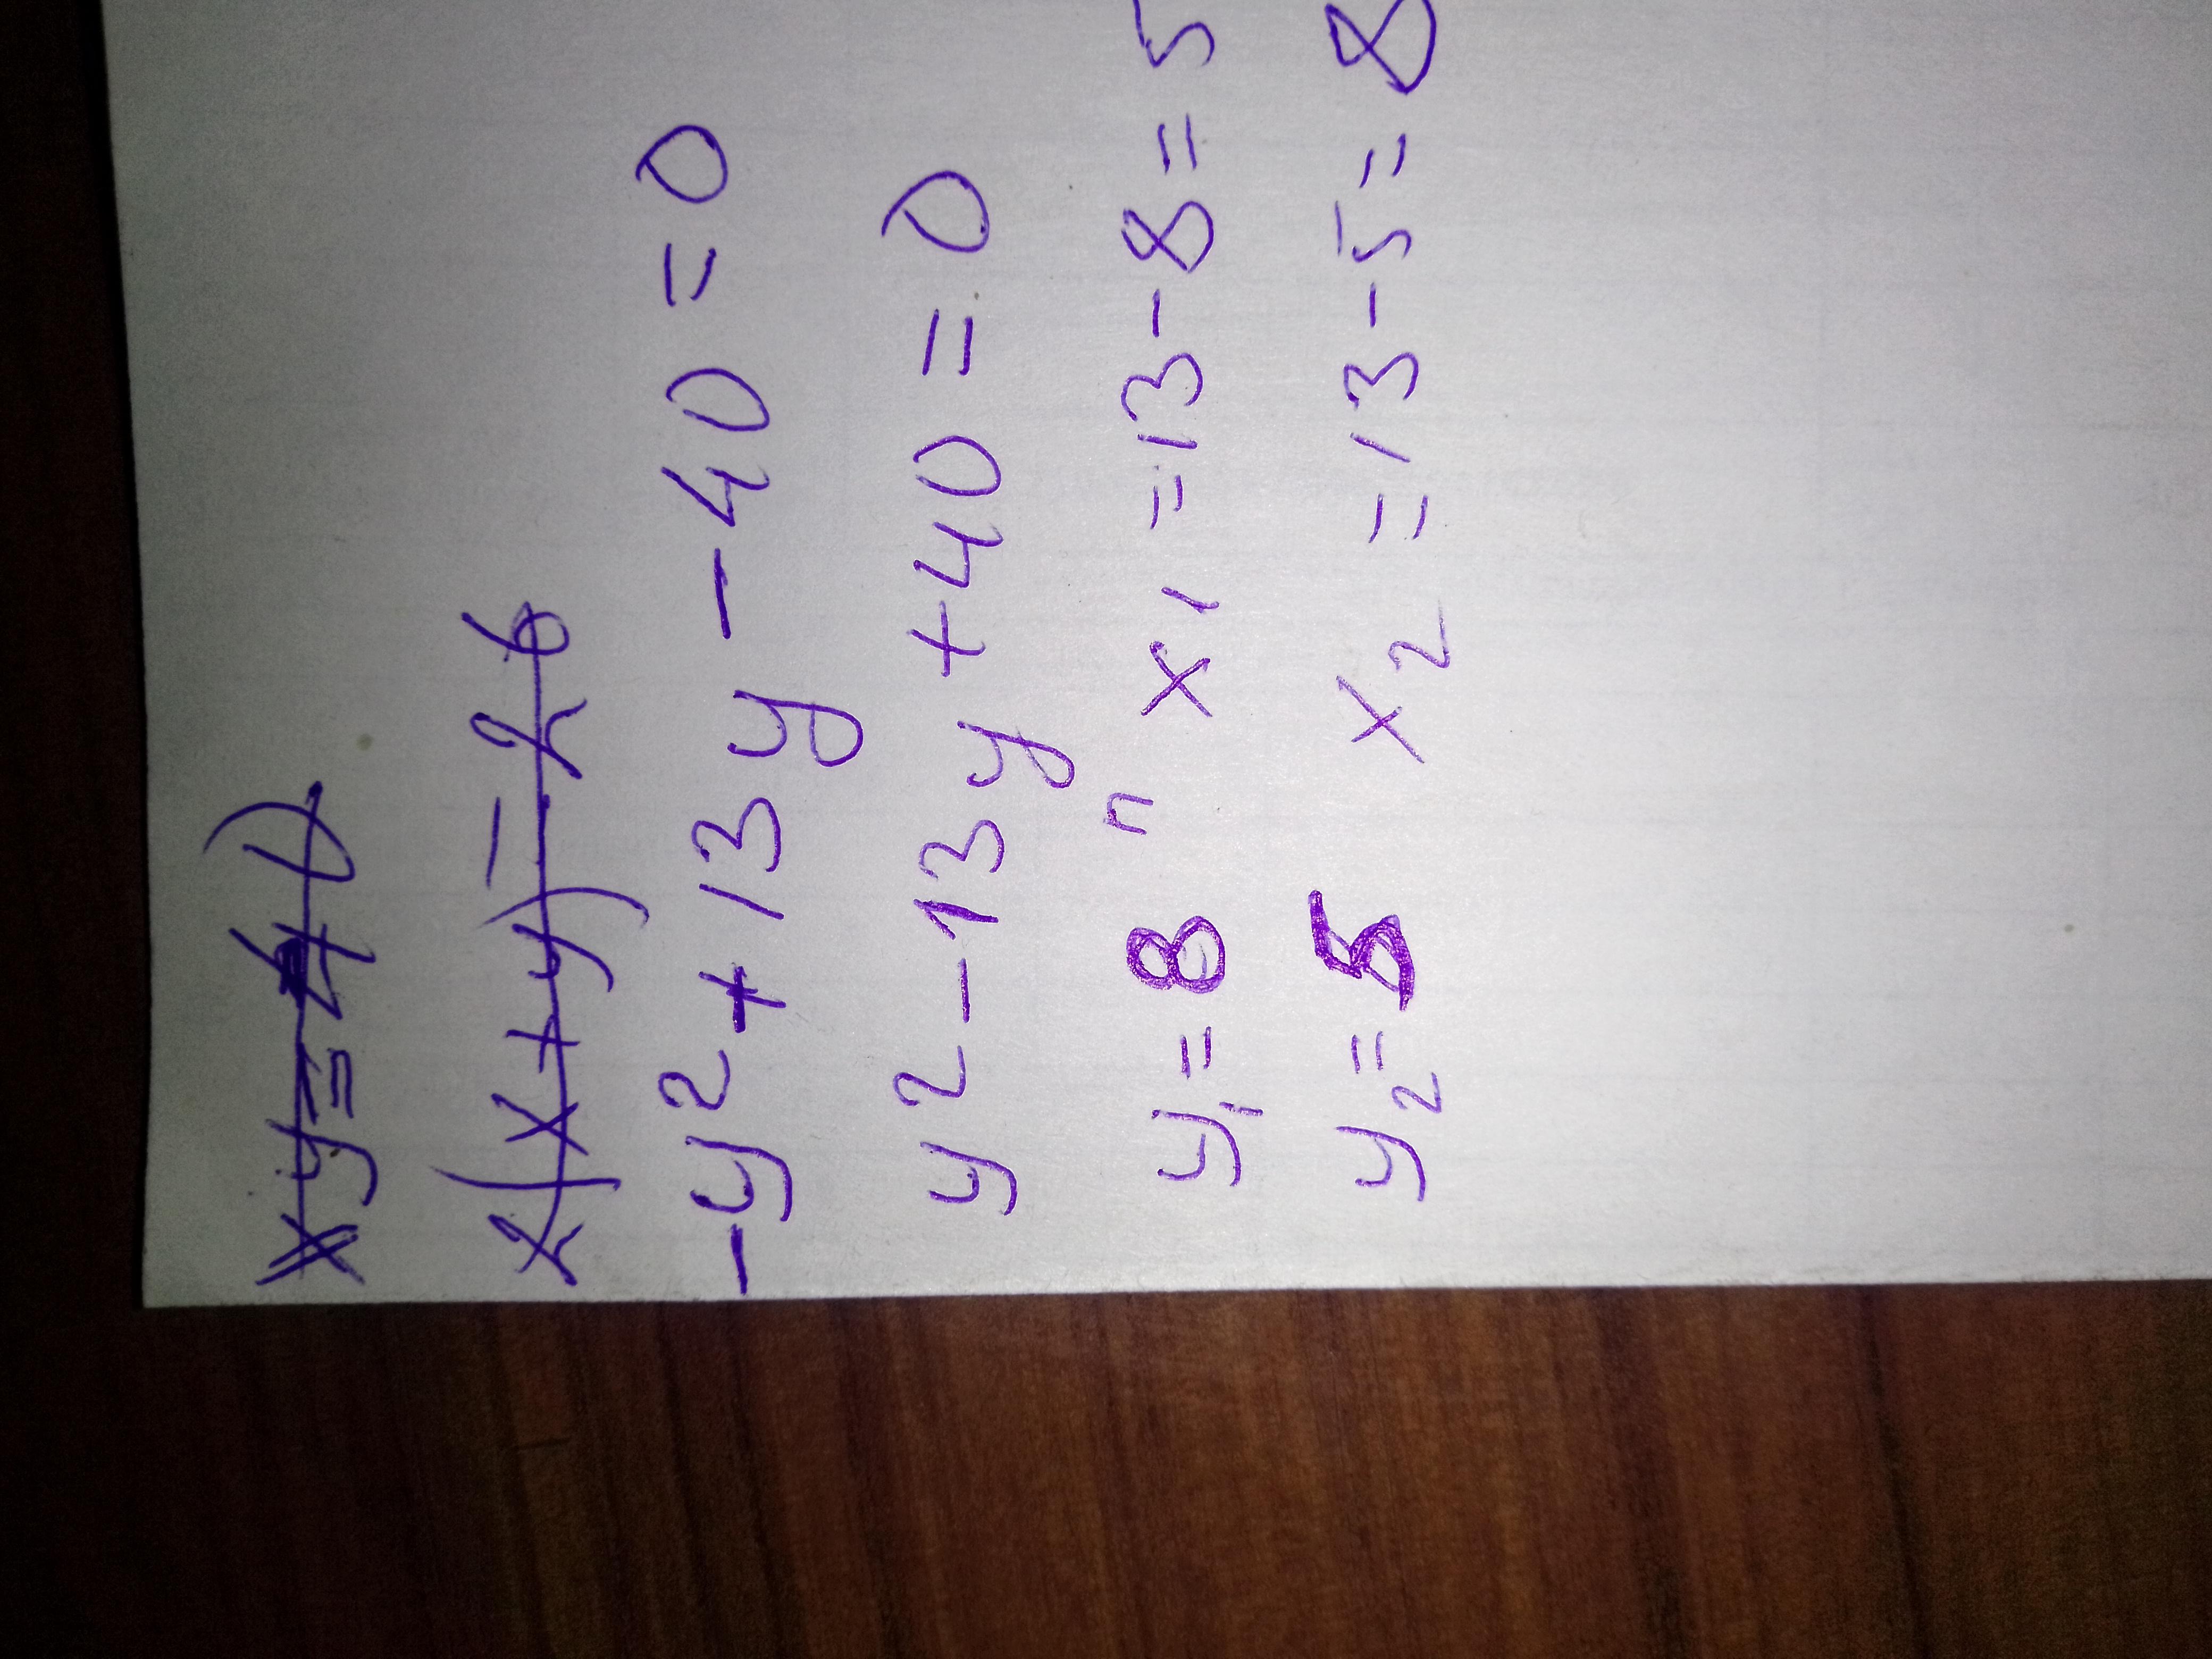 xy = 40
2(x+y) = 26
-y2 + 13y - 40 = 0
y2 - 13y + 40 = 0
y1 = 8 x1 = 13 - 8 = 5
y2 = 5 x2 = 13 - 5 = 8